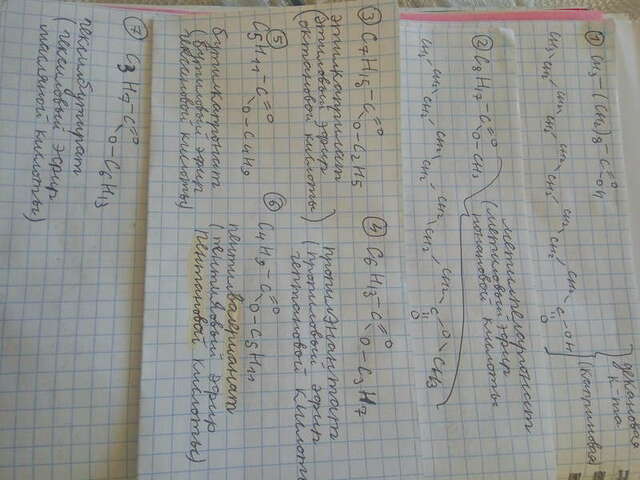 ① CH3-(CH2)8-C=O
OH
декановая
к-та
(каприновая)
CH3 CH2 CH2 CH2 CH2 CH2 CH2 CH2 CH2 C-OH
O
② C8H17-C=O
O-CH3
метилпеларгонат
(метиловый эфир
нонановой кислоты
CH3 CH2 CH2 CH2 CH2 CH2 CH2 CH2 C O CH3
O
③ C7H15-C=O
O-C2H5
этилкаприлат
(этиловый эфир
октановой кислоты)
④ C6H13-C=O
O-C3H7
пропилэнантат
(пропиловый эфир
гептановой кислоты
⑤ C5H11-C=O
O-C4H9
бутилкапронат
(бутиловый эфир
гексановой кислоты)
⑥ C4H9-C=O
O-C5H11
пентилвалерианат
(пентиловый эфир
пентановой кислоты)
⑦ C3H7-C=O
O-C6H13
гексилбутират
(гексиловый эфир
масляной кислоты)